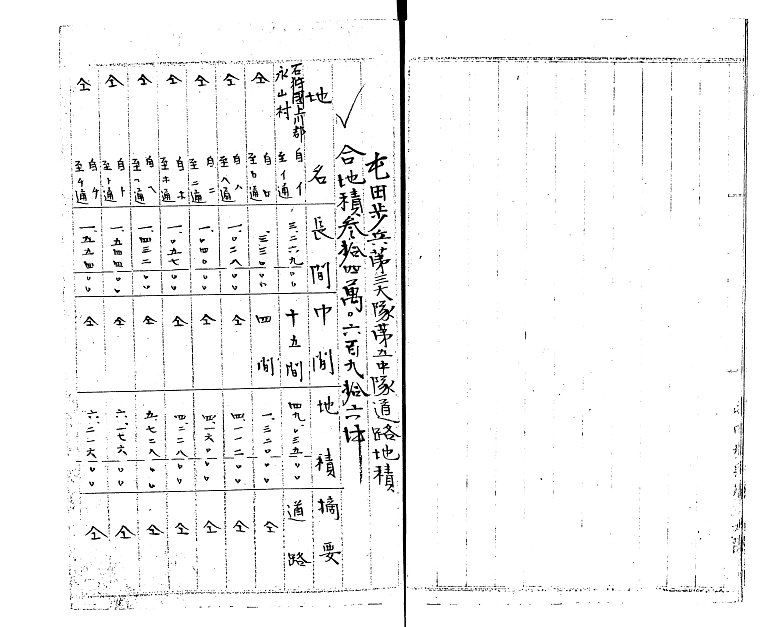 屯田歩兵第三大隊第五中隊道路地積
合地積参拾四萬〇六百九拾六坪
地名 長間 巾間 地積 摘要
石狩國上川郡永山村 自イ至イ通 三、二六九〇〇 十五間 四九、〇三五〇〇 道路
仝 自ロ至ロ通 三三〇〇〇 四間 一、三二〇〇〇 仝
仝 自ハ至ハ通 一、〇二八〇〇 仝 四、一一二〇〇 仝
仝 自ニ至ニ通 一、〇四〇〇〇 仝 四、一六〇〇〇 仝
仝 自ホ至ホ通 一、〇五七〇〇 仝 四、二二八〇〇 仝
仝 自ヘ至ヘ通 一、四三二〇〇 仝 五、七二八〇〇 仝
仝 自ト至ト通 一、五四四〇〇 仝 六、一七六〇〇 仝
仝 自チ至チ通 一、五五四〇〇 仝 六、二一六〇〇 仝